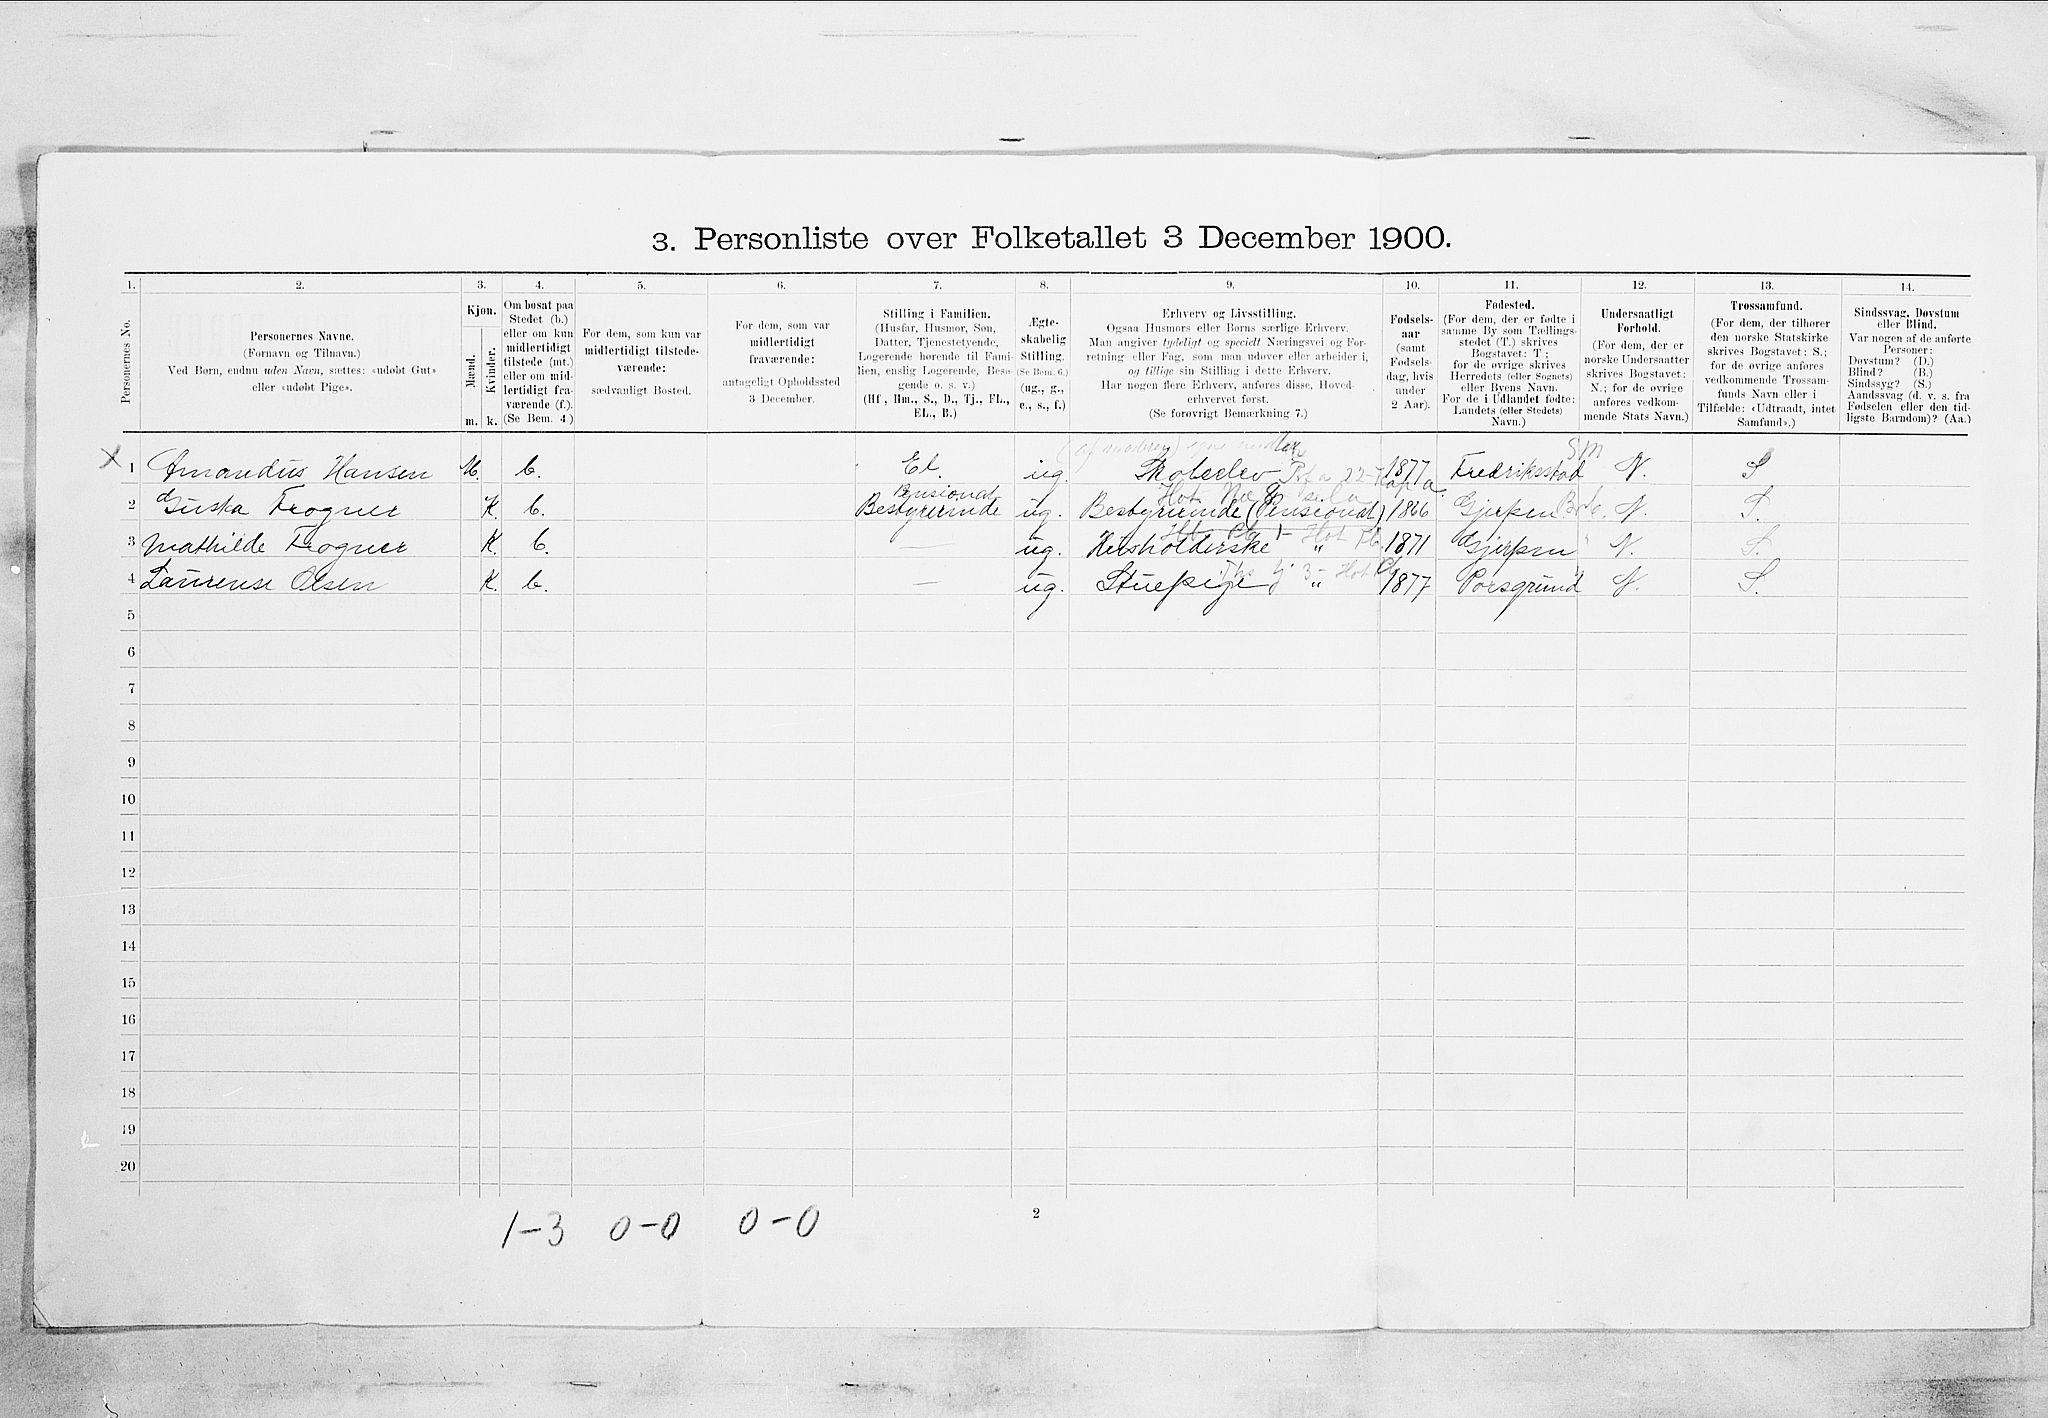 3. Personliste over Folketallet 3 December 1900.
1. 2. 3. 4. 5. 6. 7. 8. 9. 10. 11. 12. 13. 14.
Personernes No.
Personernes Navne.
(Fornavn og Tilnavn.)
Ved Børn, endnu uden Navn, sættes: «udøbt Gut»
eller «udøbt Pige».
Kjøn.
Mænd.
Kvinder.
m. k.
Om bosat paa
Stedet (b.)
eller om kun
midlertidigt
tilstede (mt.)
eller om mid-
lertidigt fra-
værende (f.).
(Se Bem. 4.)
For dem, som kun var
midlertidigt tilstede-
værende:
sædvanligt Bosted.
For dem, som var
midlertidigt
fraværende:
antageligt Opholdssted
3 December.
Stilling i Familien.
(Husfar, Husmor, Søn,
Datter, Tjenestetyende,
Logerende hørende til Fami-
lien, enslig Logerende, Besø-
gende o. s. v.)
(Hf., Hm., S., D., Tj., FL.,
EL., B.)
Ægte-
skabelig
Stilling.
(Se Bem. 6.)
(ug., g.,
e., s., f.)
Erhverv og Livsstilling.
Ogsaa Husmors eller Børns særlige Erhverv.
Man angiver tydeligt og specielt Næringsvei og For-
retning eller Fag, som man udøver eller arbeider i,
og tillige sin Stilling i dette Erhverv.
Har nogen flere Erhverv, anføres disse, Hoved-
erhvervet først.
(Se forøvrigt Bemærkning 7.)
Fødsels-
aar
(samt
Fødsels-
dag, hvis
under
2 Aar).
Fødested.
(For dem, der er fødte i
samme By som Tællings-
stedet (T.) skrives
Bogstavet: T;
for de øvrige skrives
Herredets (eller Sognets)
eller Byens Navn.
For de i Udlandet fødte:
Landets (eller Stedets)
Navn.)
Undersaatligt
Forhold.
(For dem, der er
norske Undersaatter
skrives Bogstavet:
N.; for de øvrige
anføres vedkom-
mende Stats Navn.)
Trossamfund.
(For dem, der tilhører
den norske Statskirke
skrives Bogstavet: S.;
for de øvrige anføres
vedkommende Trossam-
funds Navn eller i
Tilfælde: «Udtraadt, intet
Samfund».)
Sindssvag, Døvstum
eller Blind.
Var nogen af de anførte
Personer:
Døvstum? (D.)
Blind? (B.)
Sindssyg? (S.)
Aandssvag (d. v. s. fra
Fødselen eller den tid-
ligste Barndom)? (Aa.)
X 1 Amandus Hansen M. b. El. ug. 1877 Fredriksstad N. S
2 Guska Frogner K. b. Pensionat Bestyrerinde ug. Bestyrerinde (Pensionat) 1866 Gjerpen N. S.
3 Mathilde Frogner K. b. — ug. Husholderske " 1871 Gjerpen N. S.
4 Laurense Olsen K. b. — ug. Stuepige " 1877 Porsgrund N. S.
5
6
7
8
9
10
11
12
13
14
15
16
17
18
19
20
1-3 0-0 0-0
2